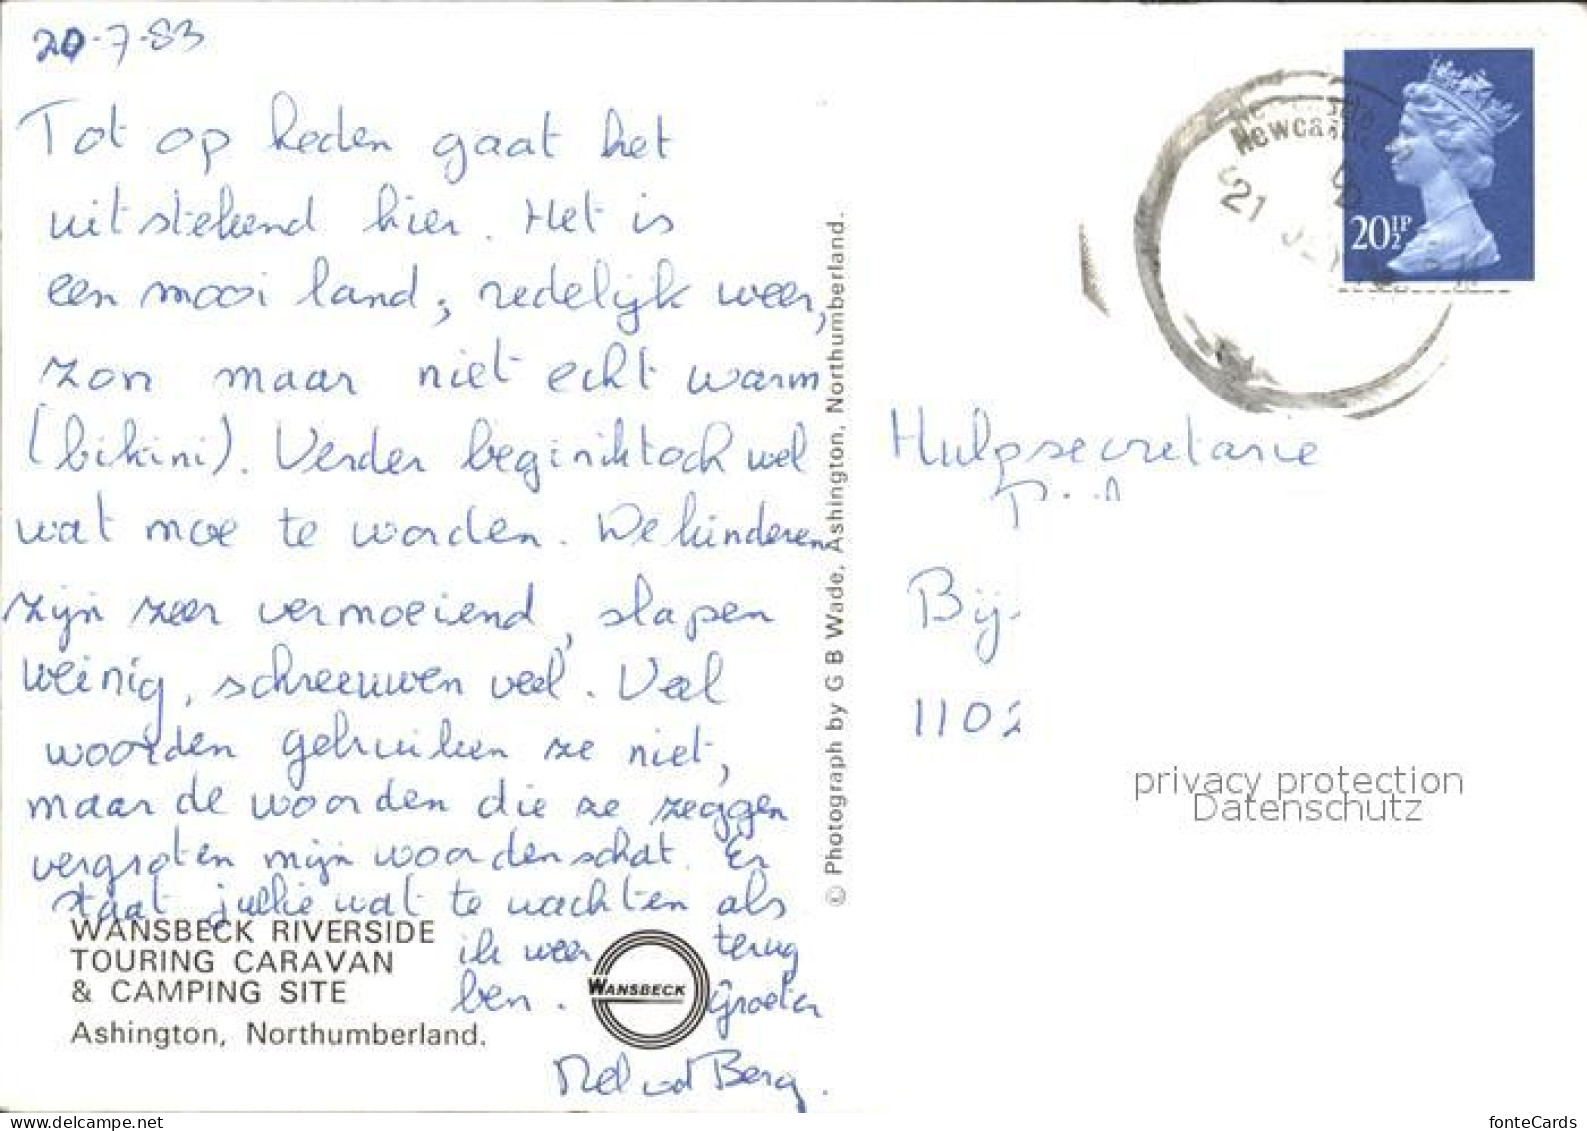 20-7-83
Tot op heden gaat het
uitstekend hier. Het is
een mooi land, redelijk weer,
zon maar niet echt warm
(bikini). Verder begin ik toch wel
wat moe te worden. De kinderen
zijn zeer vermoeiend, slapen
weinig, schreeuwen veel. Veel
woorden gebruiken ze niet,
maar de woorden die ze zeggen
vergroten mijn woordenschat. Er
staat jullie wat te wachten als
ik weer terug
ben. Groeten
Nel vd Berg.
WANSBECK RIVERSIDE
TOURING CARAVAN
& CAMPING SITE
Ashington, Northumberland.
WANSBECK
© Photograph by G B Wade, Ashington, Northumberland.
Newcastle
21
20½P
Hulpsecretarie
Bij
1102
privacy protection
Datenschutz
fonteCards